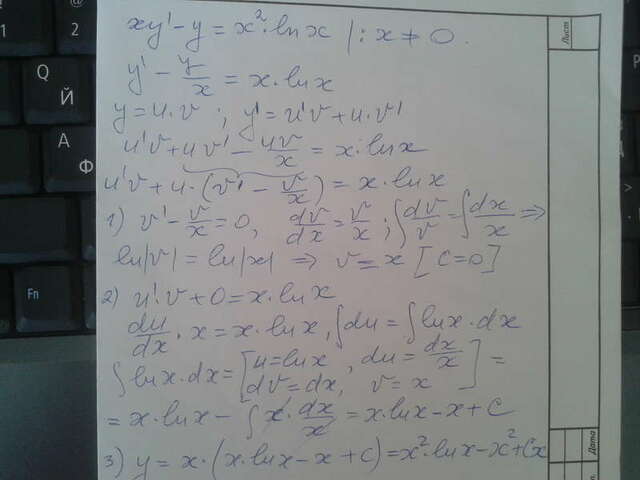 xy' - y = x²·ln x |: x ≠ 0.
y' - y/x = x·ln x
y = u·v ; y' = u'v + u·v'
u'v + uv' - uv/x = x·ln x
u'v + u·(v' - v/x) = x·ln x
1) v' - v/x = 0, dv/dx = v/x ; ∫dv/v = ∫dx/x ⇒
ln|v| = ln|x| ⇒ v = x [C=0]
2) u'·v + 0 = x·ln x
du/dx · x = x·ln x, ∫du = ∫ln x·dx
∫ln x·dx = [u = ln x, du = dx/x
dv = dx, v = x] =
= x·ln x - ∫x·dx/x = x·ln x - x + C
3) y = x·(x·ln x - x + C) = x²·ln x - x² + Cx
Лист
Дата
Q
Й
A
Ф
Fn
@
2